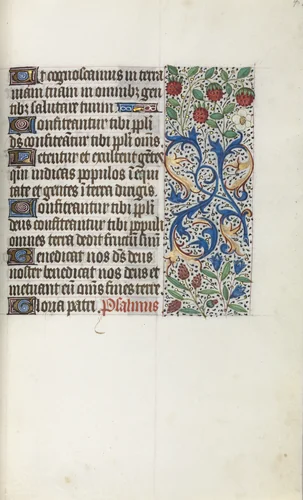 Ut cognoscamus in terra
viam tuam in omnibz gen
tibz salutare tuum
Confiteantur tibi ppli
ds confiteãtur tibi ppli oms
Letentur et exultent gẽtes
qm iudicas populos ĩ equi
tate et gentes ĩ terra dirigis.
Confiteantur tibi ppli
deus confiteantur tibi populi
omnes terra dedit fructũ suũ
Benedicat nos ds deus
noster benedicat nos deus et
metuant eũ oms fines terre.
Gloria patri. Psalmus